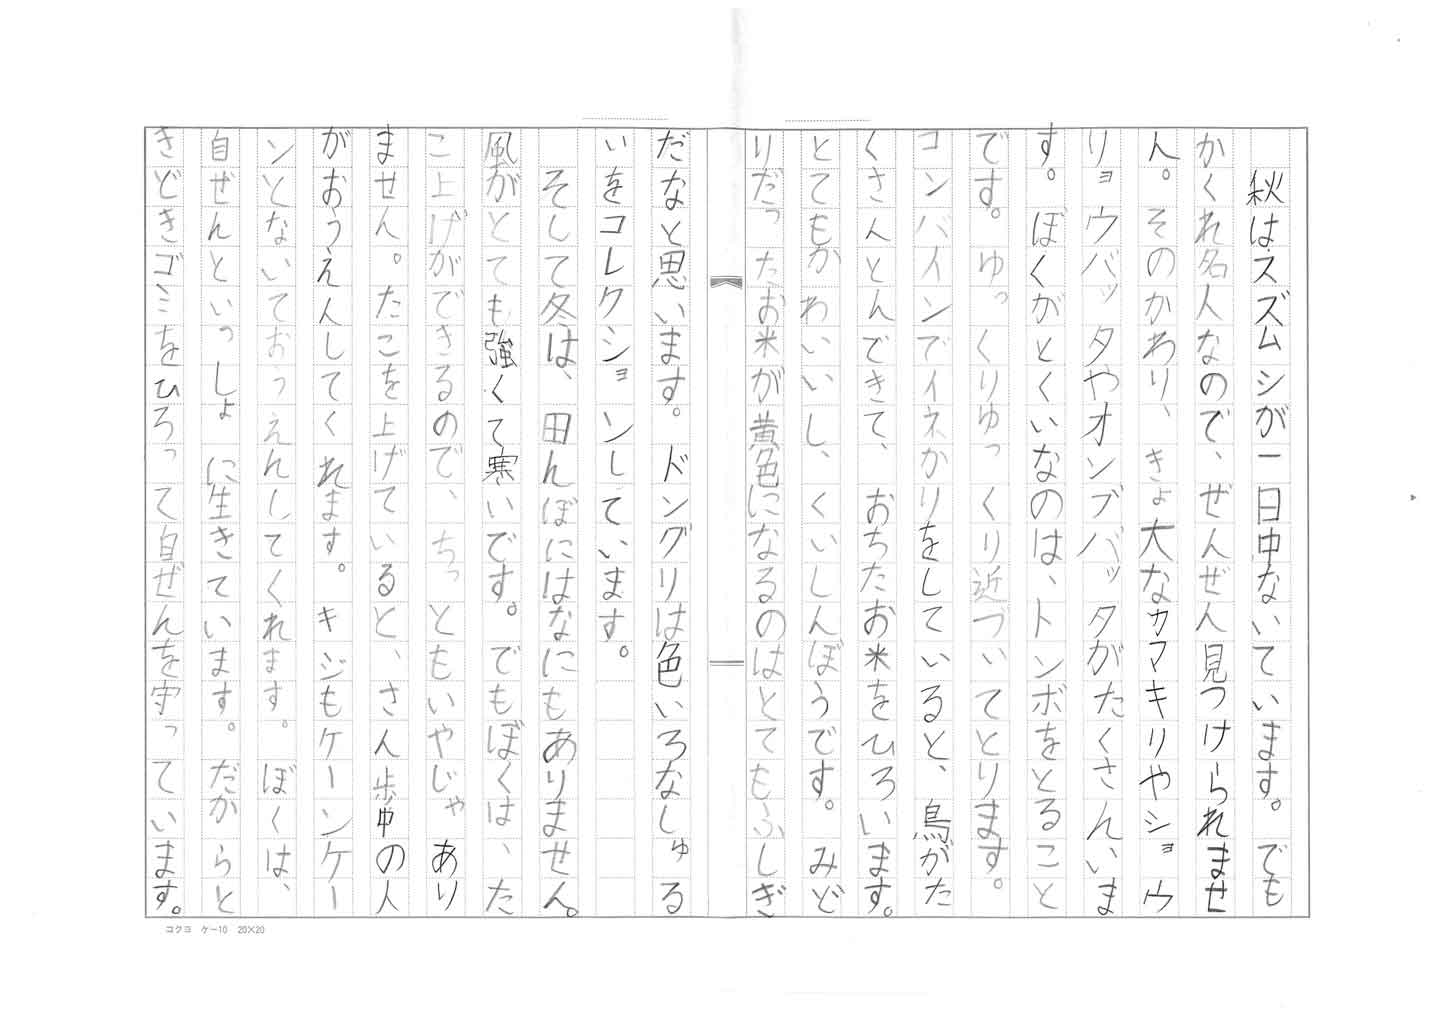 秋はスズムシが一日中ないています。でも
かくれ名人なので、ぜんぜん見つけられませ
ん。そのかわり、きょ大なカマキリやショウ
リョウバッタやオンブバッタがたくさんいま
す。ぼくがとくいなのは、トンボをとること
です。ゆっくりゆっくり近づいてとります。
コンバインでイネかりをしていると、鳥がた
くさんとんできて、おちたお米をひろいます。
とてもかわいいし、くいしんぼうです。みど
りだったお米が黄色になるのはとてもふしぎ
だなと思います。ドングリは色いろなしゅる
いをコレクションしています。
そして冬は、田んぼにはなにもありません。
風がとても強くて寒いです。でもぼくは、た
こ上げができるので、ちっともいやじゃあり
ません。たこを上げていると、さん歩中の人
がおうえんしてくれます。キジもケーンケー
ンとないておうえんしてくれます。ぼくは、
自ぜんといっしょに生きています。だからと
きどきゴミをひろって自ぜんを守っています。
コクヨ ケー10 20×20